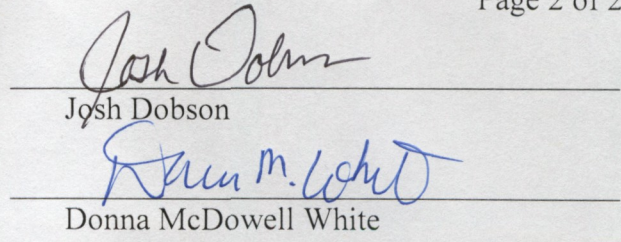 Page 2 of 2
Josh Dobson
Josh Dobson
Donna M. White
Donna McDowell White